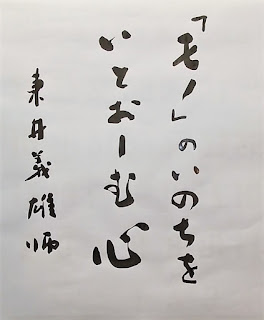 「モノ」のいのちを
いとおしむ心
東井義雄師